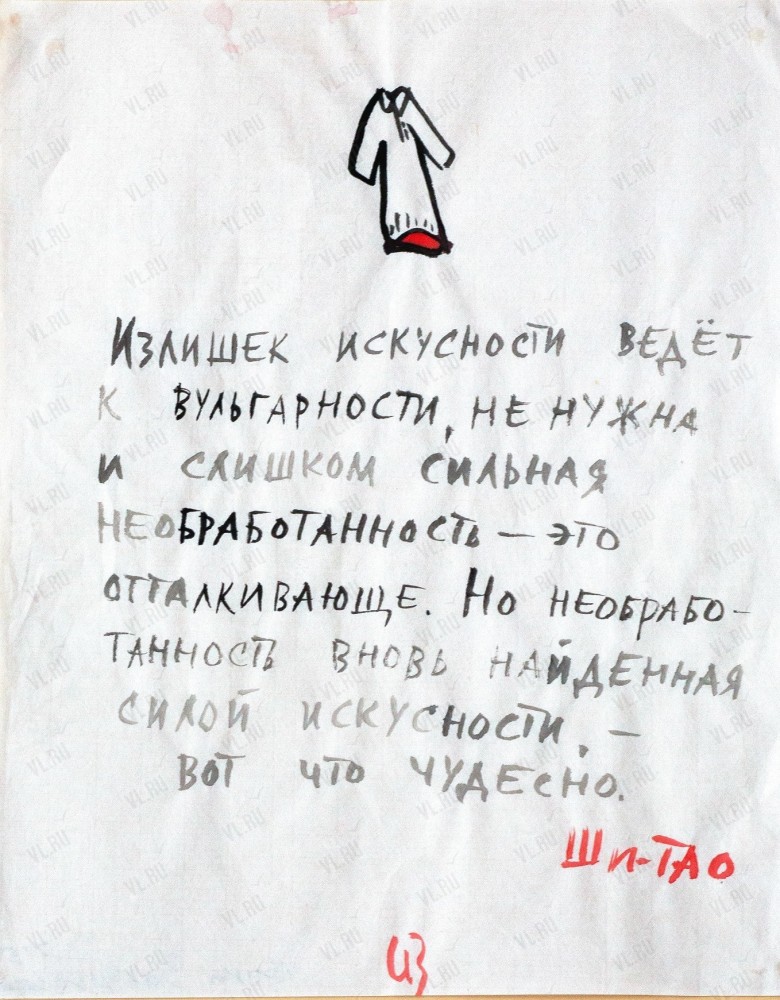 Излишек искусности ведёт
к вульгарности, не нужна
и слишком сильная
необработанность — это
отталкивающе. Но необрабо-
танность вновь найденная
силой искусности, —
вот что чудесно.
Ши-Тао
ИЗ
VL.RU